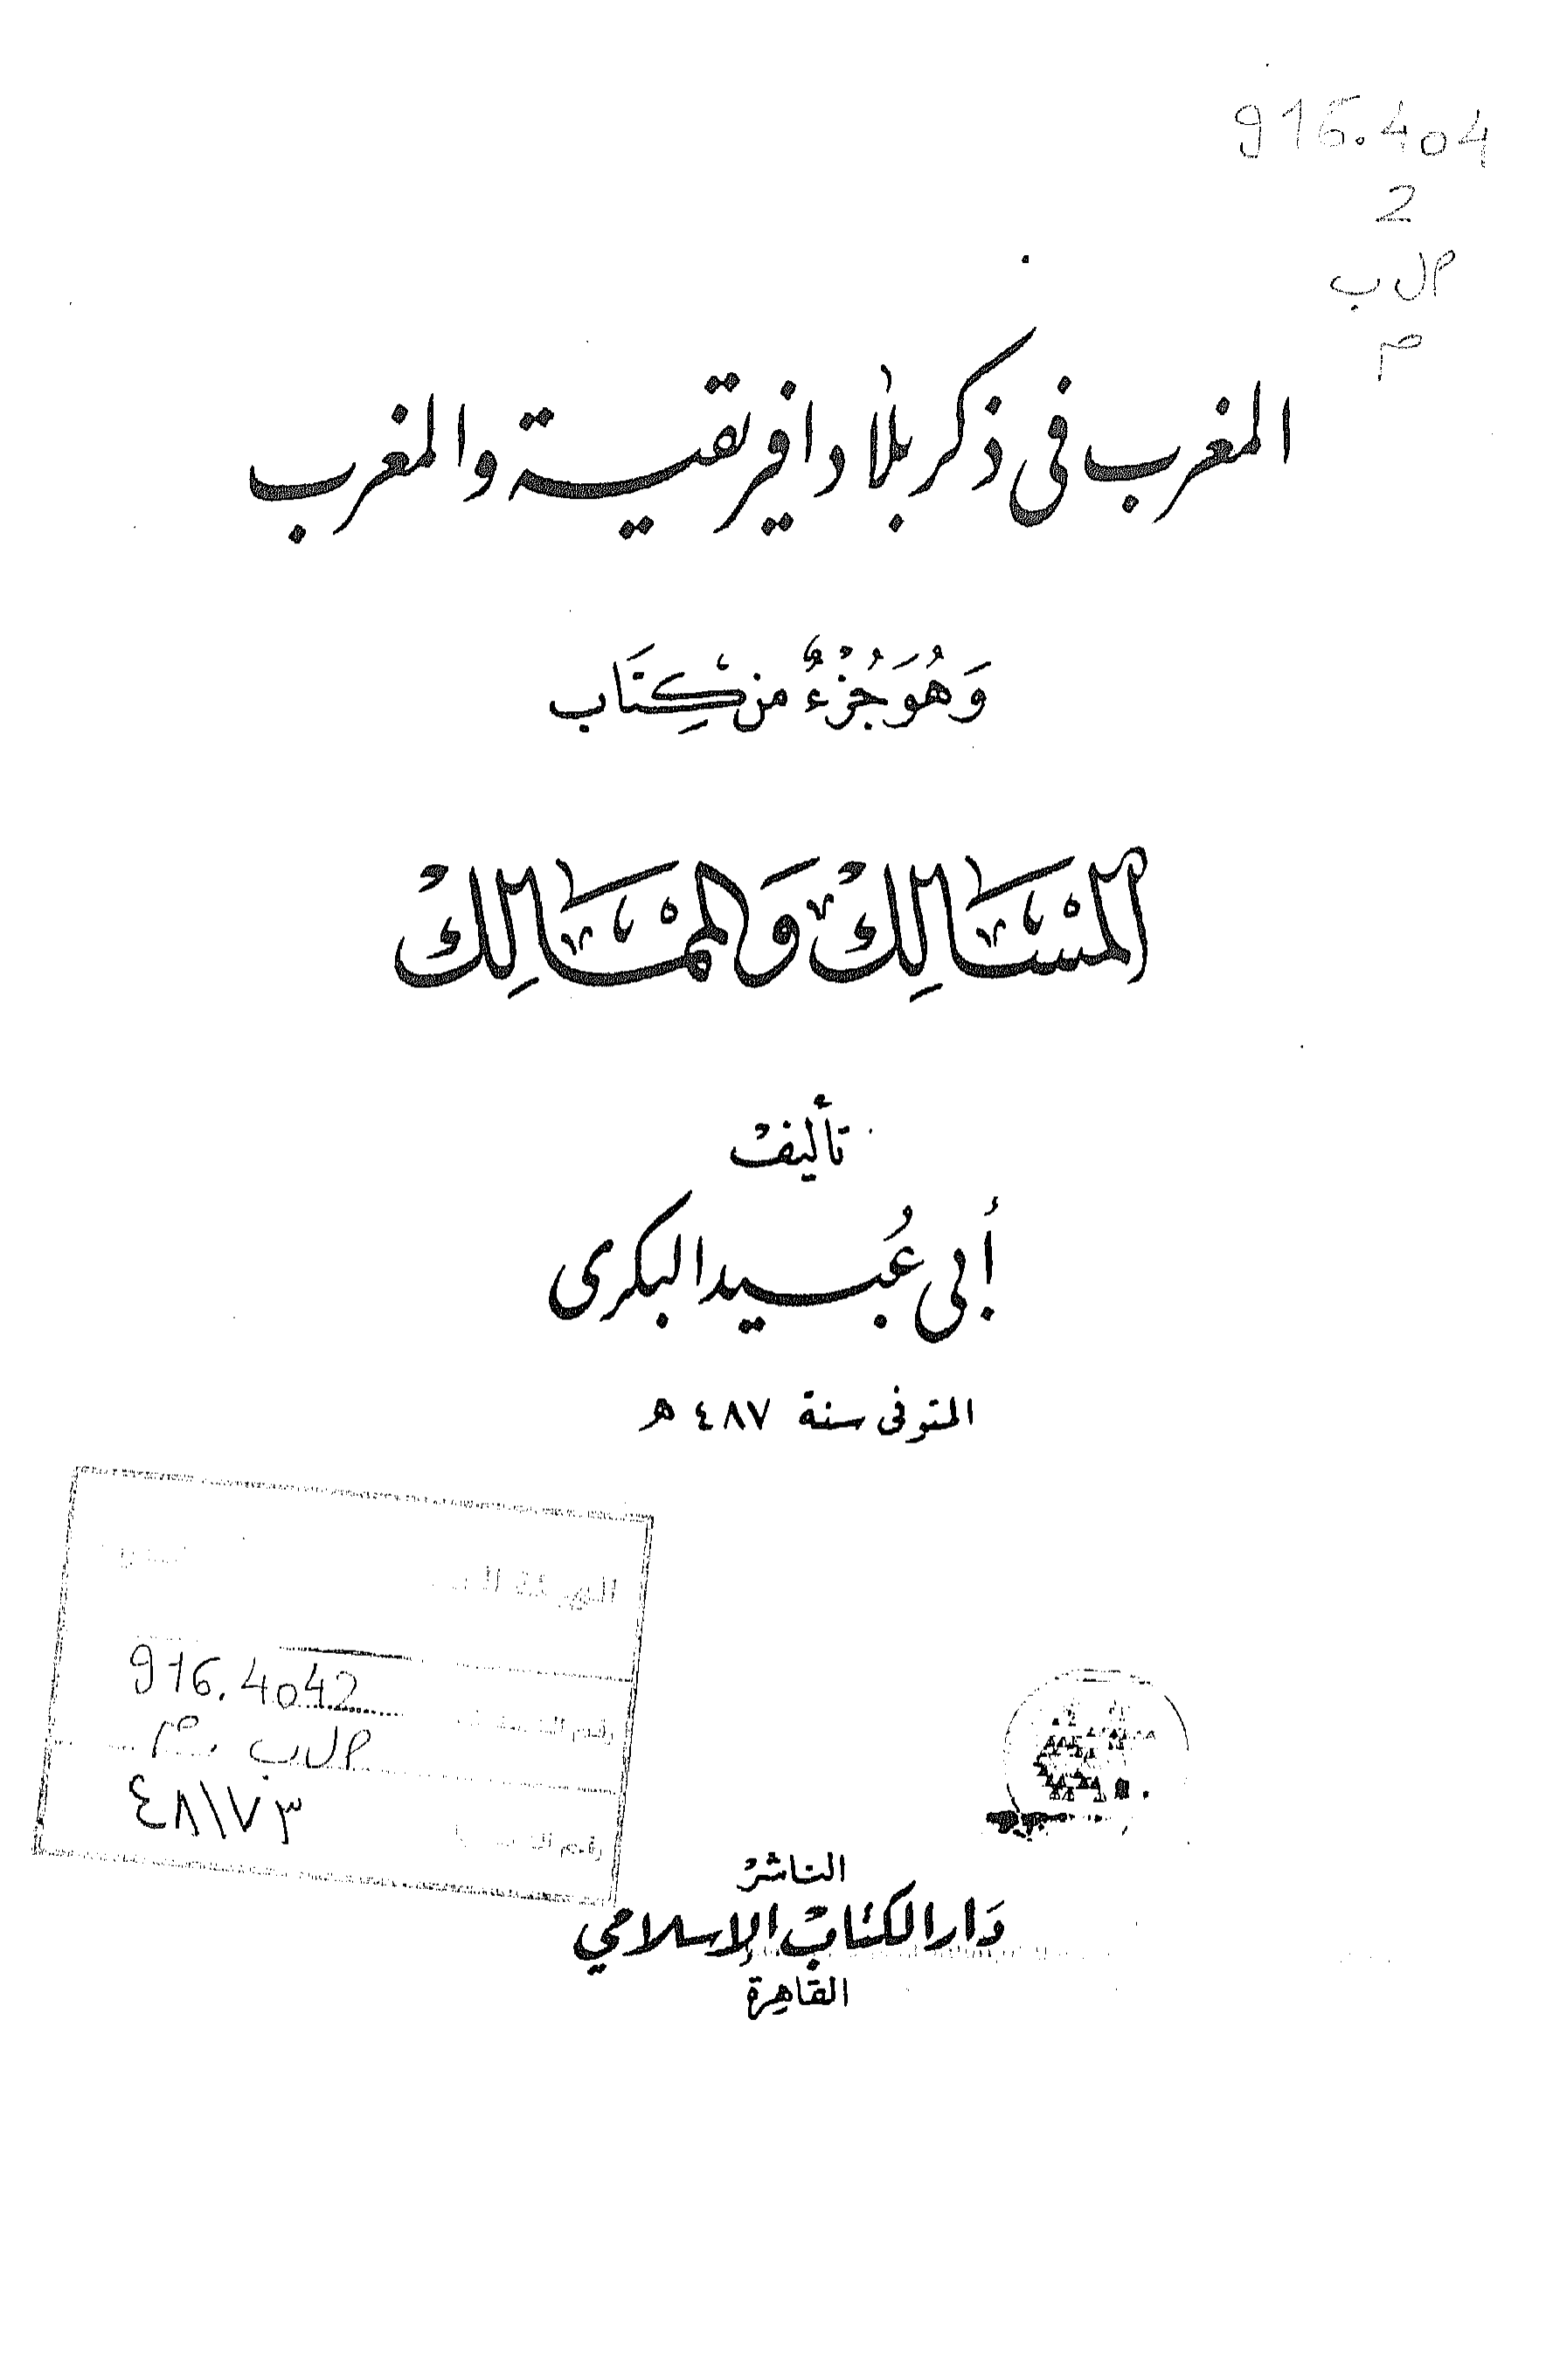 916.404
2
م ل ب
م
المغرب فى ذكر بلاد افريقية والمغرب
وَهُوَ جُزْءٌ من كِتَاب
المسَالِكْ وَالممْالِكْ
تأليفْ
أبى عُبيد البكرى
المتوفى سنة ٤٨٧ هـ
916.4042
م ل ب م
رقم
٤٨١٧٣
رقم
الناشرْ
دَار الكتابْ الإسلامي
القاهِرة